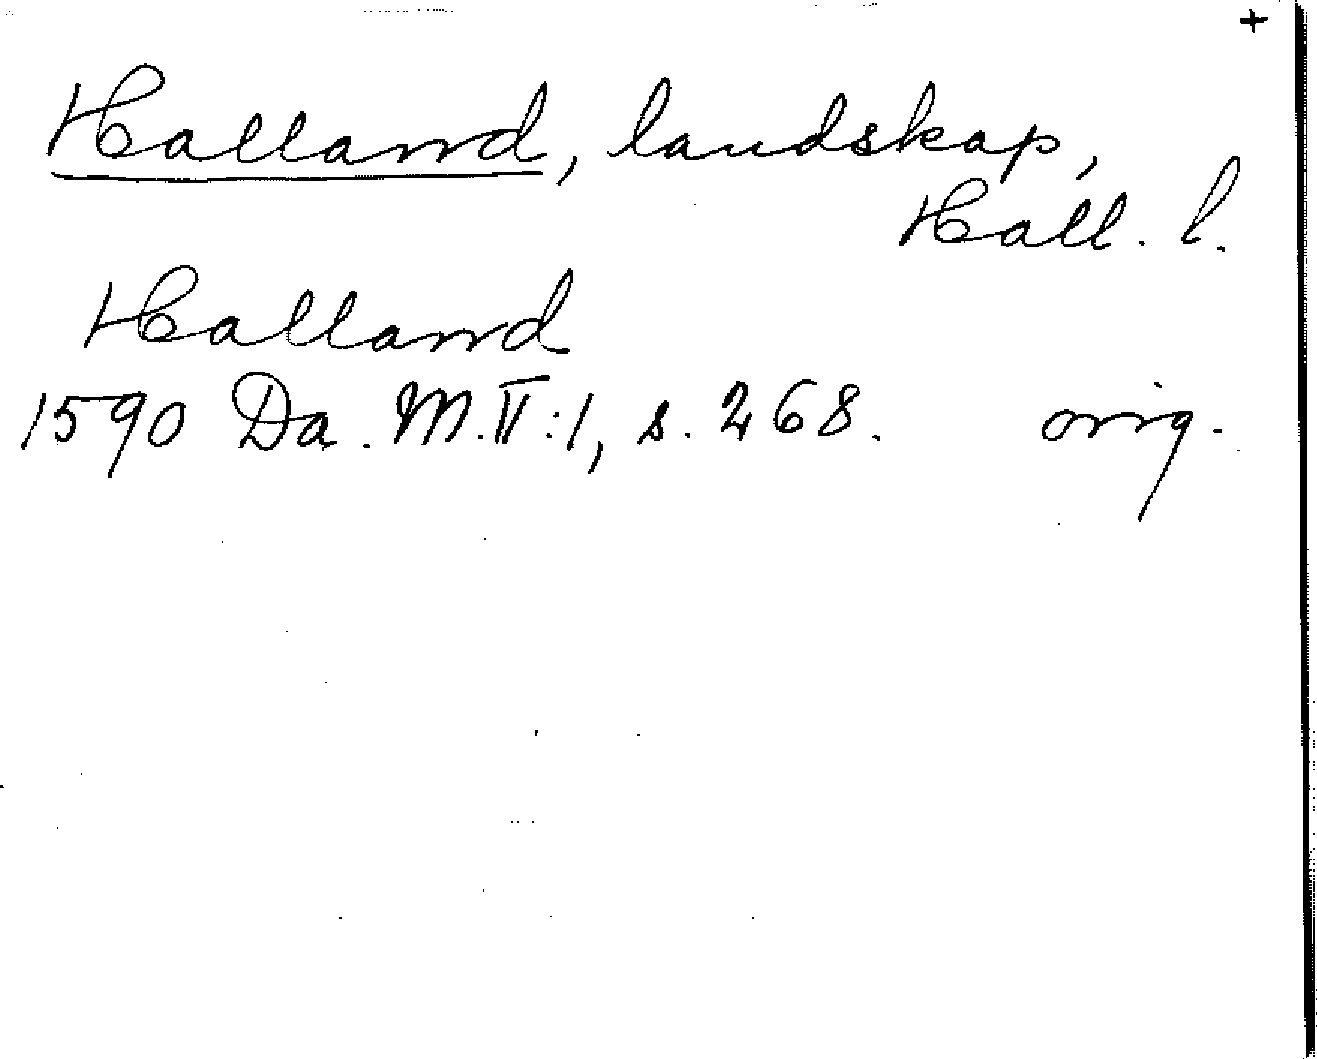 +
Halland, landskap,
Hall. l.
Halland
1590 Da. M. II:1, s. 268. orig.